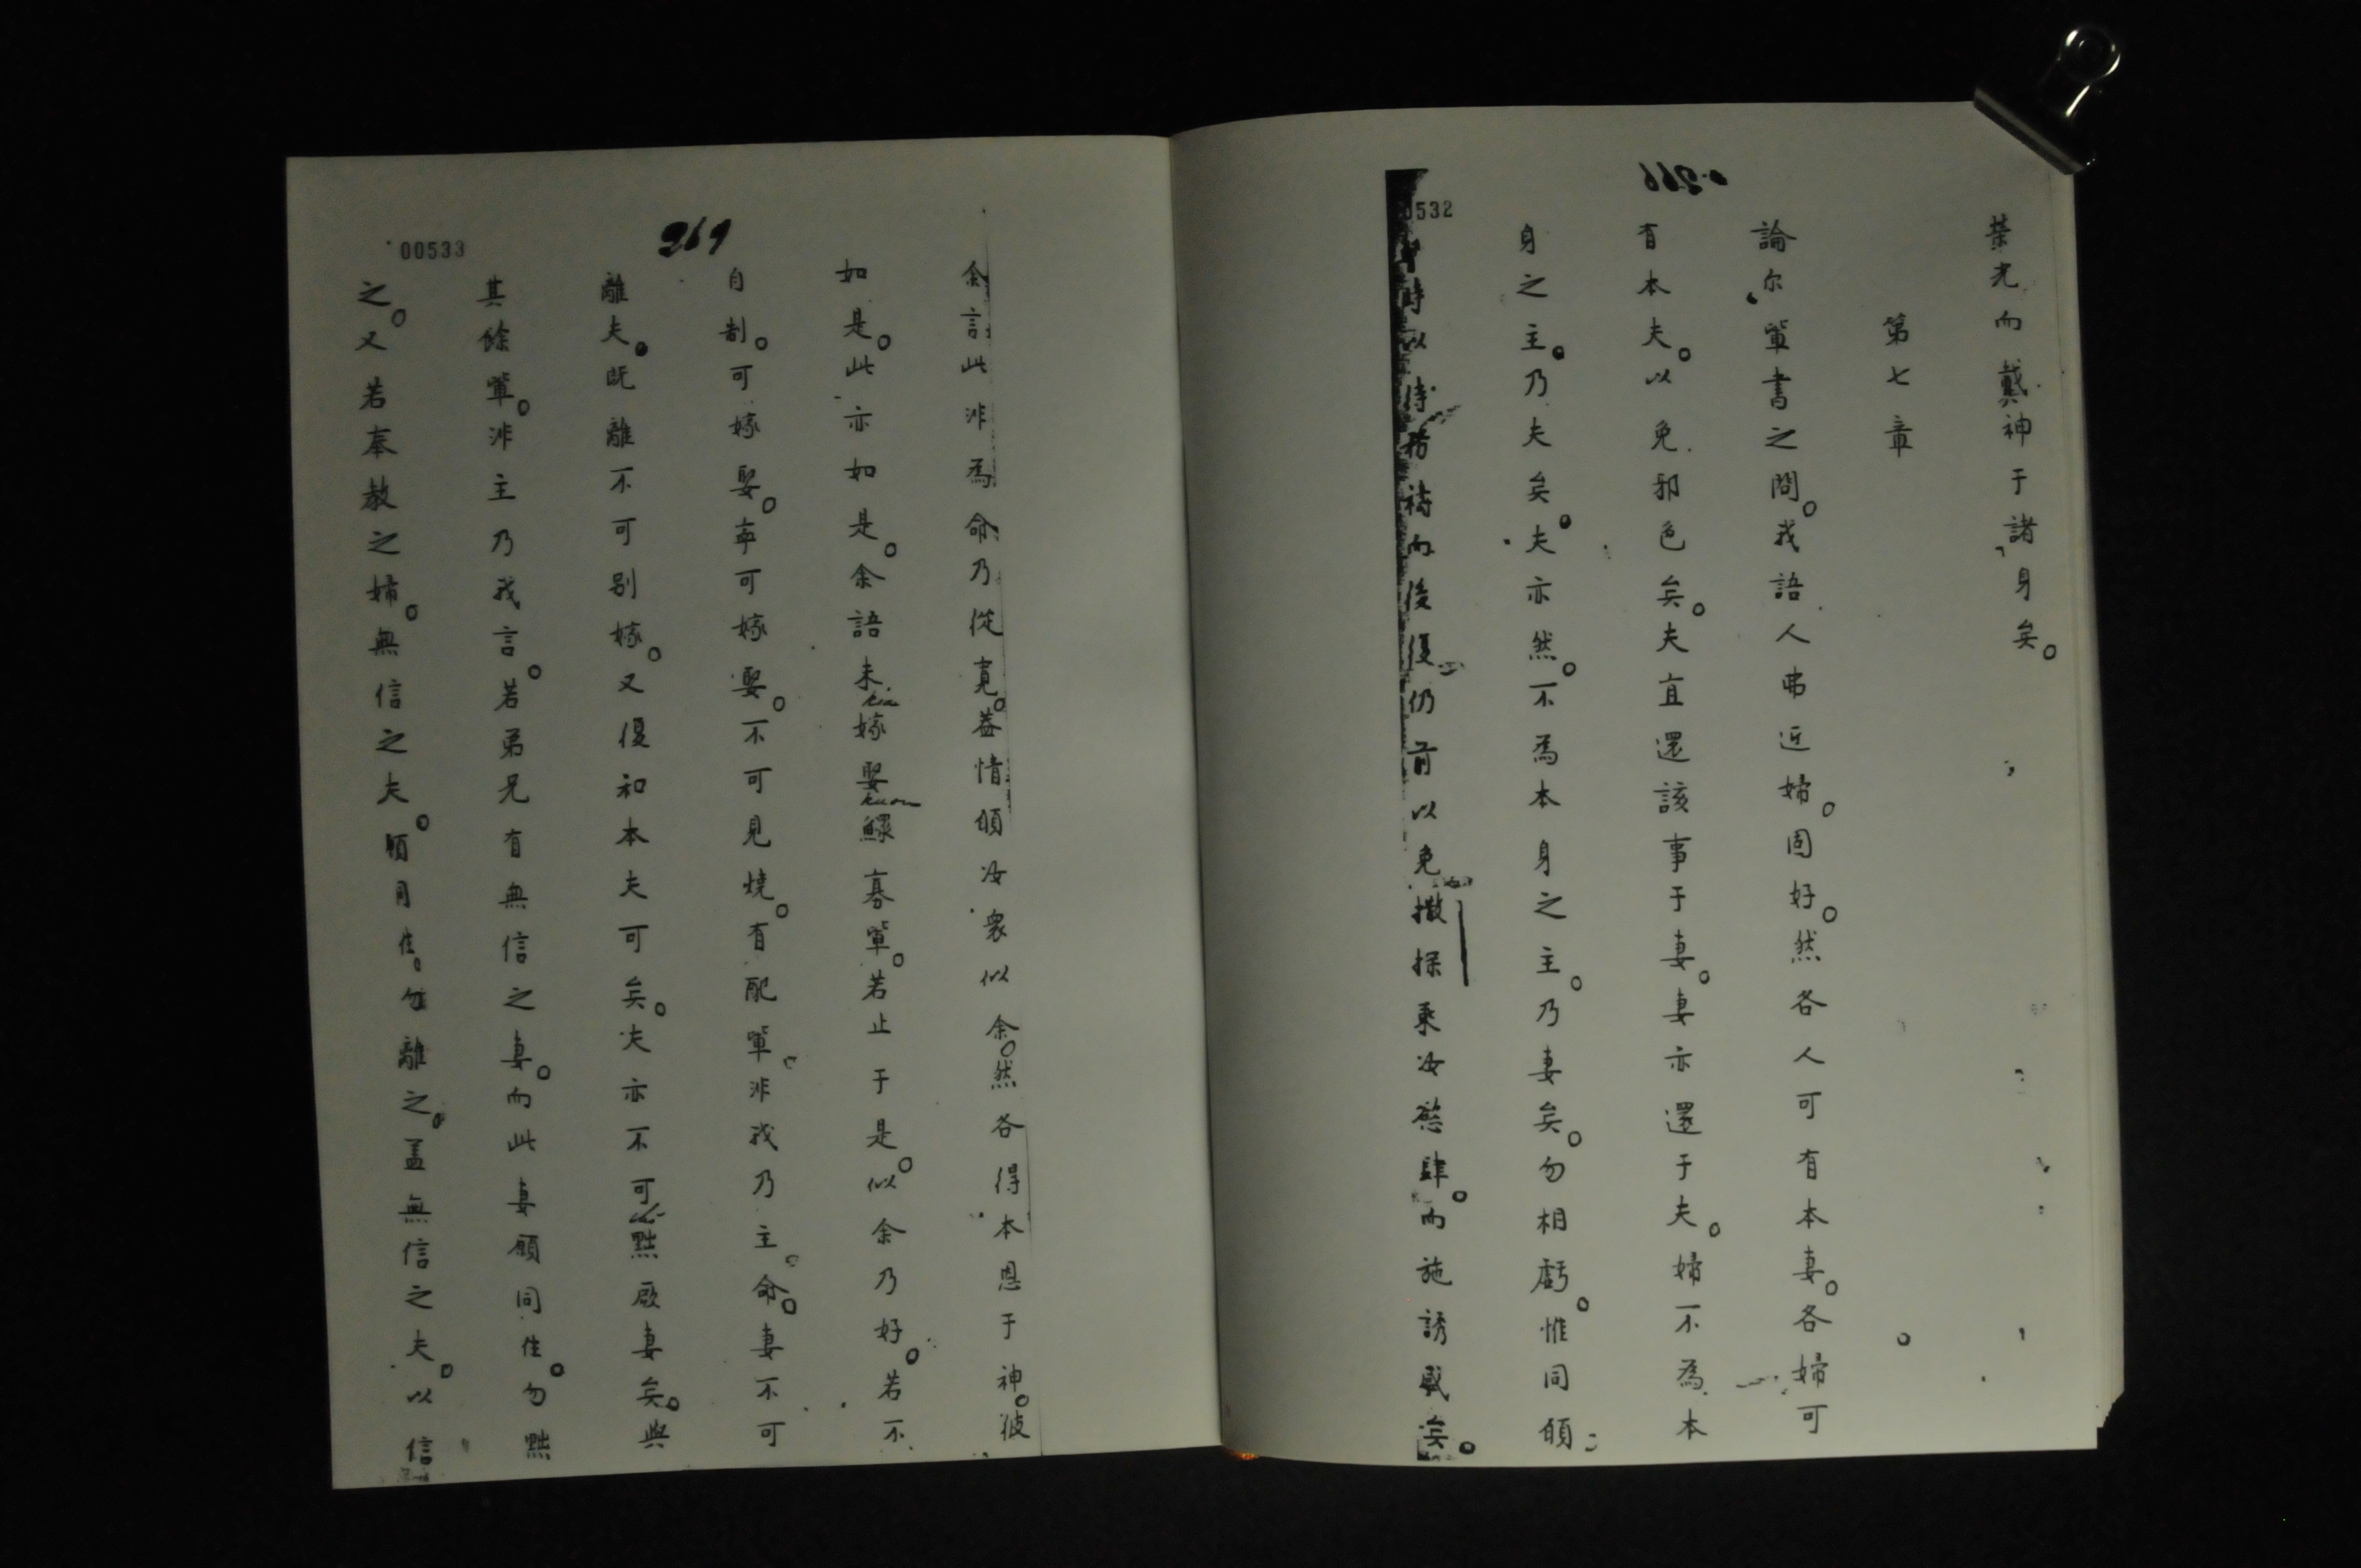 榮光而戴神于諸身矣。
第七章
論尔軰書之問。我語人弗近婦。固好。然各人可有本妻。各婦可
有本夫。以免邪色矣。夫宜還該事于妻。妻亦還于夫。婦不為本
身之主。乃夫矣。夫亦然。不為本身之主。乃妻矣。勿相虧。惟同傾
時以待務禱而後復仍前以免撒探乘汝慾肆。而施誘感矣。
余言此非為命乃從寛。葢情傾汝衆似余。然各得本恩于神。彼
如是。此亦如是。余語未嫁娶鰥寡軰。若止于是。似余乃好。若不
自制。可嫁娶。寕可嫁娶。不可見燒。有配軰。非我乃主。命。妻不可
離夫。既離不可別嫁。又復和本夫可矣。夫亦不可黜厥妻矣。與
其餘軰。非主乃我言。若弟兄有無信之妻。而此妻願同住。勿黜
之。又若奉教之婦。無信之夫。願同住。勿離之。盖無信之夫。以信
00532
00533
269